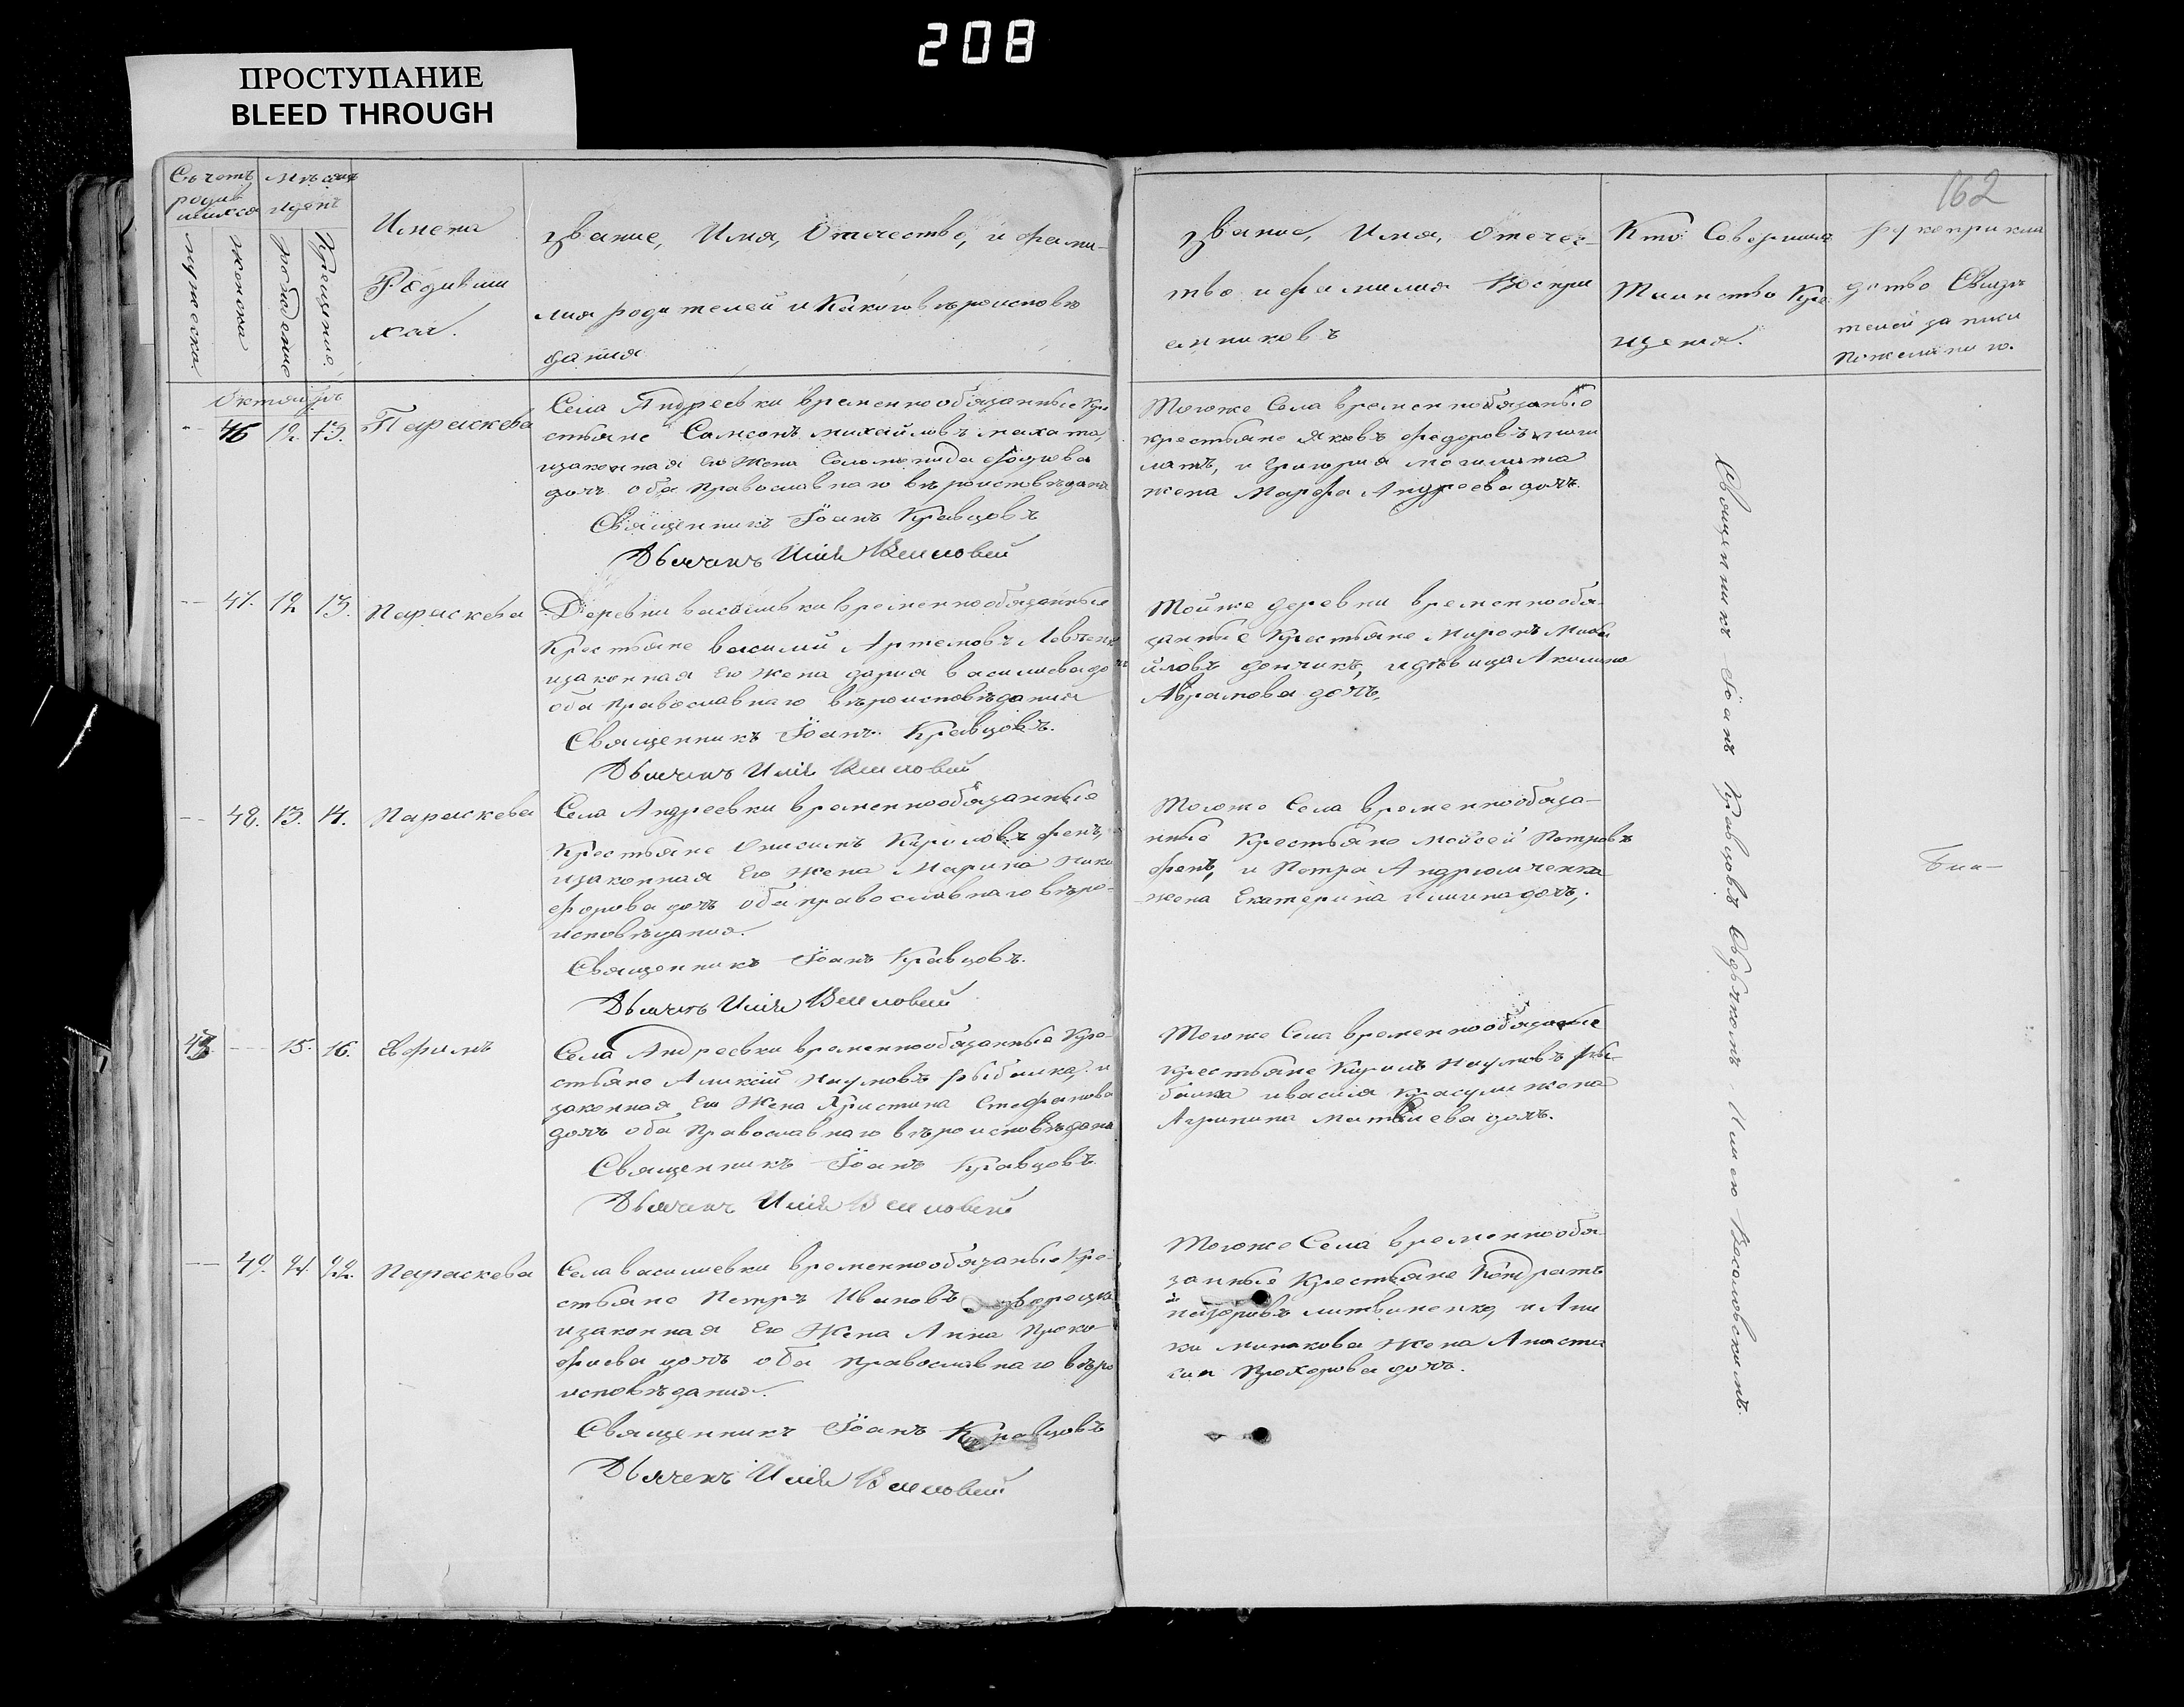 208
ПРОСТУПАНИЕ
BLEED THROUGH
162
Счетъ родившихся
Мѣсяцъ и день
мужеска
женска
рожденіе
Крещеніе
Имена
Родивши
хся.
Званіе, Имя, Отчество, и фами-
лия родителей и Какого вѣроисповѣ
данія
Званіе, Имя, Отечес-
тво и фамилия Воспри
емниковъ
Кто Совершилъ
Таинство Кре
щения.
рукоприкла
дство Свидѣ
телей записи
По желанию.
Октябрь
46 12. 13. Параскева
Села Андреевки временнообязанные Кре
стьяне Самсонъ Михайловъ Махота,
изаконная Его Жена Соломонида
дочь оба Православнаго вѣроисповѣдания
Священникъ Іоанъ Кравцовъ
Дьячекъ Илія
Тогоже Села временнообязаные
крестьяне Яковъ Федоровъ
и Григория
жена Марфа Андреева дочь.
47. 12 13. Параскева
Деревни василевки временнообязанные
Крестьяне василий Артемовъ Левченко
изаконная Его Жена дария василиева дочь
оба православнаго вѣроисповѣдания
Священникъ Іоанъ Кравцовъ.
Дьячекъ Илія
Тойже деревни временнообя-
занные Крестьяне Миронъ Михаи
йловъ дончикъ, идѣвица Акилина
Аврамова дочь.
48. 13. 14. Параскева
Села Андреевки временнообязанные
Крестьяне Онисимъ Кириловъ фенъ,
изаконная Его Жена Марина Ники
форова дочь оба православнаго вѣро-
исповѣдания.
Священникъ Іоанъ Кравцовъ.
Дьячекъ Илія
Тогоже Села временнообяза-
нные Крестьяне Мойсей Петровъ
фенъ, и Петра Андрюшченка
жена Екатерина Илиина дочь,
Бла-
15. 16. Евфимъ
Села Андреевки временнообязанные Кре-
стьяне Аликсій Наумовъ рыбалка, и
законная Его Жена Христина Стефанова
дочь оба Православнаго вѣроисповѣдания
Священникъ Іоанъ Кравцовъ.
Дьячекъ Илія
Тогоже Села временнообязаные
крестьяне Кирилъ Наумовъ рыб-
балка ивасиля Красули жена
Агрипина Матвиева дочь.
49. 21. 22. Параскева
Села василиевки временнообязаные Кре-
стьяне Петръ Ивановъ
изаконная Его Жена Анна Проко-
фиева дочь оба Православнаго вѣро
исповѣдания.
Священникъ Іоанъ Кравцовъ
Дьячекъ Илія
Тогоже Села временнообя-
занные Крестьяне Кондратъ
литвиненко, и
Жена Анаста
сия Прохорова дочь.
Священникъ Іоанъ Кравцовъ Содьячкомъ Илиею